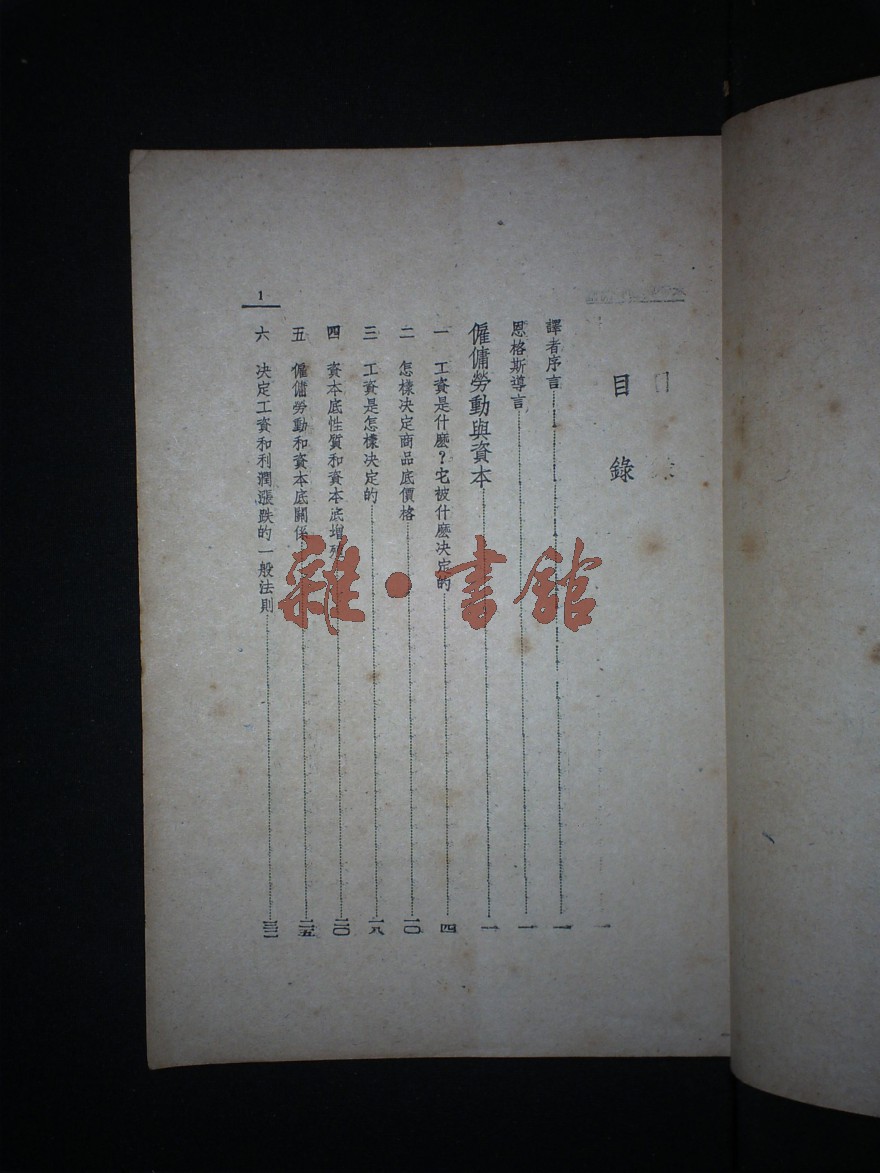 目錄
譯者序言 一
恩格斯導言 一
僱傭勞動與資本 一
一 工資是什麼？它被什麼決定的 四
二 怎樣決定商品底價格 一〇
三 工資是怎樣決定的 一八
四 資本底性質和資本底增殖 二〇
五 僱傭勞動和資本底關係 二五
六 決定工資和利潤漲跌的一般法則
1
雜·書館